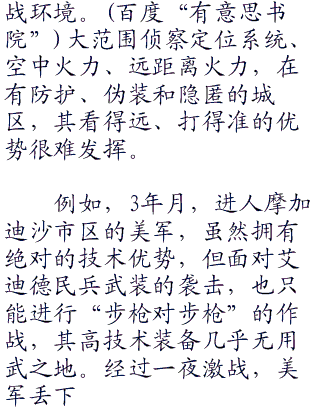 战环境。(百度“有意思书
院”)大范围侦察定位系统、
空中火力、远距离火力，在
有防护、伪装和隐匿的城
区，其看得远、打得准的优
势很难发挥。
例如，3年月，进人摩加
迪沙市区的美军，虽然拥有
绝对的技术优势，但面对艾
迪德民兵武装的袭击，也只
能进行“步枪对步枪”的作
战，其高技术装备几乎无用
武之地。经过一夜激战，美
军丢下